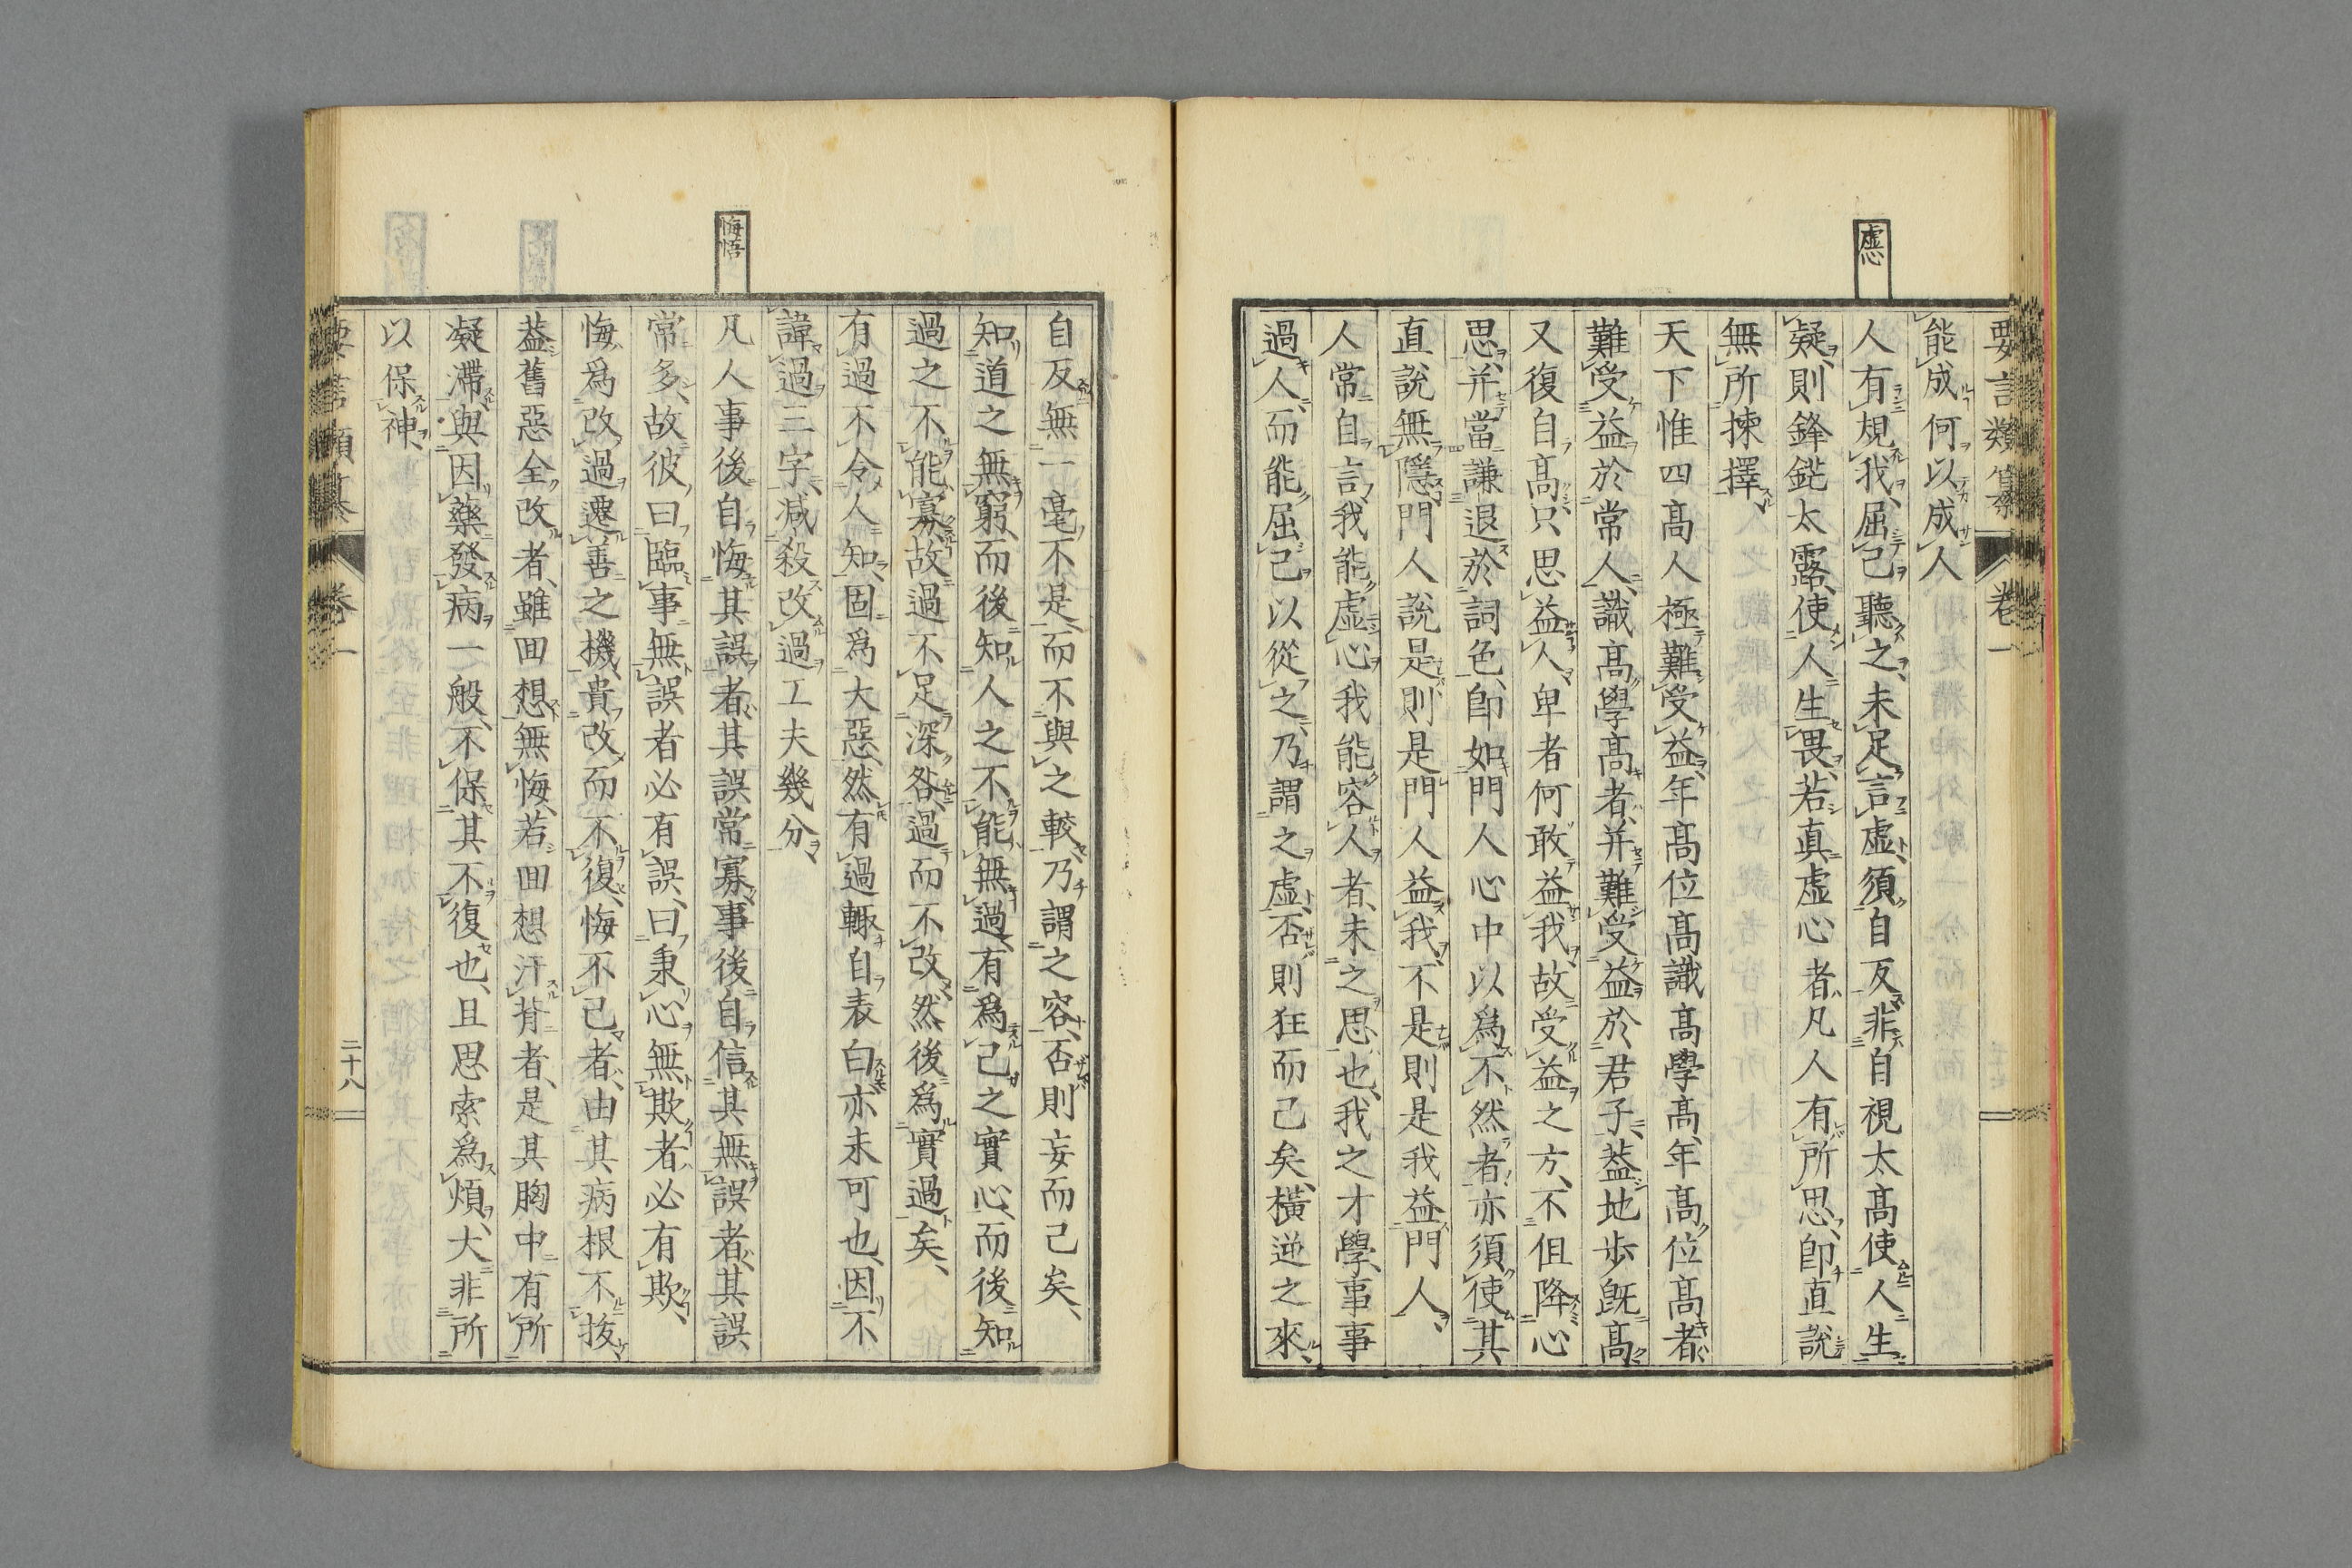 要言類纂 卷一
虛心
能成何以成人
人有規我屈己聽之未足言虛須自反非自視太高使人生
疑則鋒鋩太露使人生畏若真虛心者凡人有所思卽直說
無所揀擇
天下惟四高人極難受益年高位高識高學高年高位高者
難受益於常人識高學高者并難受益於君子葢地步旣高
又復自高只思益人卑者何敢益我故受益之方不但降心
思并當謙退於詞色卽如門人心中以爲不然者亦須使其
直說無隱門人說是則是門人益我不是則是我益門人
人常自言我能虛心我能容人者未之思也我之才學事事
過人而能屈己以從之乃謂之虛否則狂而己矣橫逆之來
自反無一毫不是而不與之較乃謂之容否則妄而己矣
知道之無窮而後知人之不能無過有爲己之實心而後知
過之不能寡故過不足深咎過而不改然後爲實過矣
有過不令人知固爲大惡然有過輙自表白亦未可也因不
諱過三字减殺改過工夫幾分
悔悟
凡人事後自悔其誤者其誤常寡事後自信其無誤者其誤
常多故彼曰臨事無誤者必有誤曰秉心無欺者必有欺
悔爲改過遷善之機貴改而不復悔不己者由其病根不拔
葢舊惡全改者雖囬想無悔若囬想汗背者是其胸中有所
凝滯與因藥發病一般不保其不復也且思索爲煩大非所
以保神
要言類纂 卷一 二十八